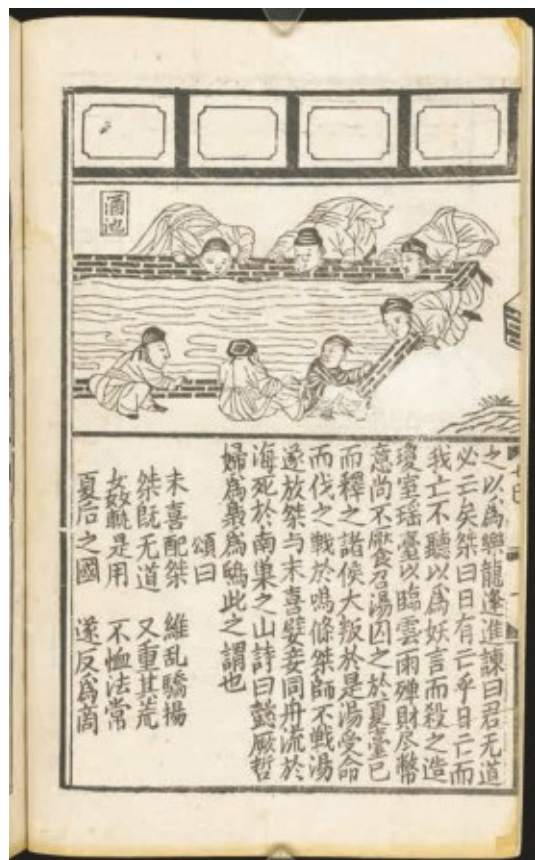 酒池
之以爲樂龍逢進諫曰君无道
必亡矣桀曰日有亡乎日亡而
我亡不聽以爲妖言而殺之造
瓊室瑤臺以臨雲雨殫財尽幣
意尚不厭召湯囚之於夏臺已
而釋之諸侯大叛於是湯受命
而伐之戰於鳴條桀師不戰湯
遂放桀与末喜嬖妾同舟流於
海死於南巢之山詩曰懿厥哲
婦爲梟爲鴟此之謂也
頌曰
末喜配桀 維乱驕揚
桀既无道 又重其荒
姦軌是用 不恤法常
夏后之國 遂反爲商